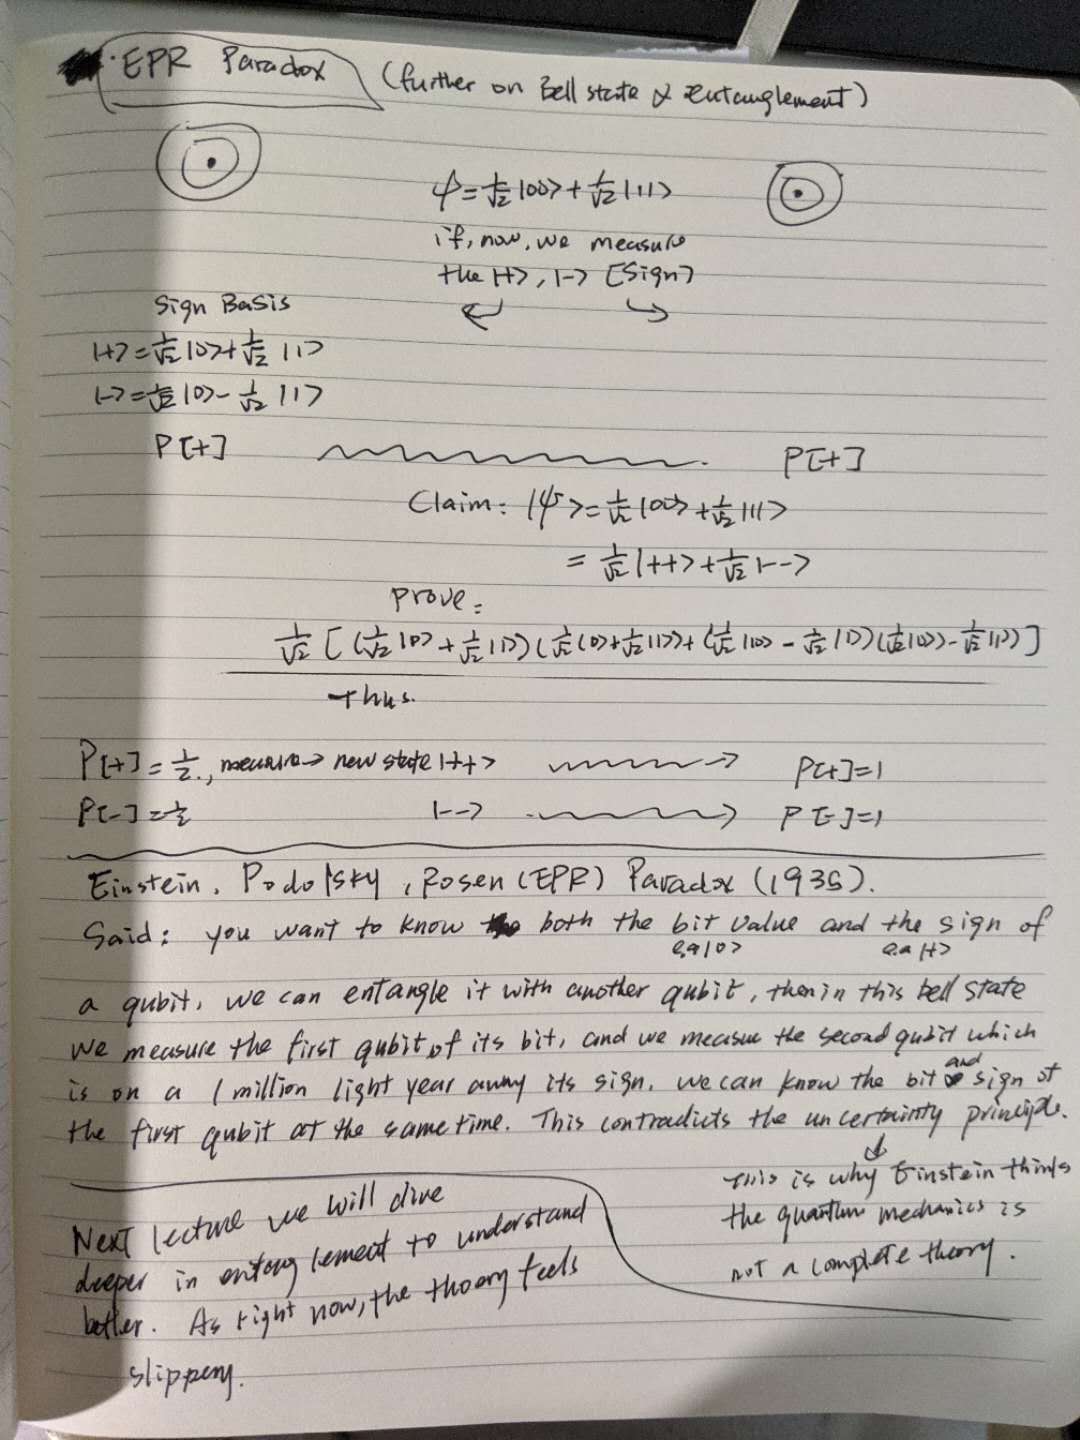 EPR Paradox (further on Bell state & Entanglement)
ψ = 1/√2 |00> + 1/√2 |11>
if, now, we measure
the |+>, |-> [Sign]
Sign Basis
|+> = 1/√2 |0> + 1/√2 |1>
|-> = 1/√2 |0> - 1/√2 |1>
P[+] P[+]
Claim: |ψ> = 1/√2 |00> + 1/√2 |11>
= 1/√2 |++> + 1/√2 |-->
Prove:
1/√2 [ (1/√2 |0> + 1/√2 |1>) (1/√2 |0> + 1/√2 |1>) + (1/√2 |0> - 1/√2 |1>) (1/√2 |0> - 1/√2 |1>) ]
Thus.
P[+] = 1/2, measure → new state |++> → P[+]=1
P[-] = 1/2 |--> → P[-]=1
Einstein, Podolsky, Rosen (EPR) Paradox (1935).
Said: you want to know both the bit value and the sign of
e.g |0> e.g |+>
a qubit, we can entangle it with another qubit, then in this bell state
we measure the first qubit of its bit, and we measure the second qubit which
is on a 1 million light year away its sign. we can know the bit and sign of
the first qubit at the same time. This contradicts the uncertainty principle.
↓
This is why Einstein thinks
the quantum mechanics is
not a complete theory.
Next lecture we will dive
deeper in entanglement to understand
better. As right now, the theory feels
slippery.